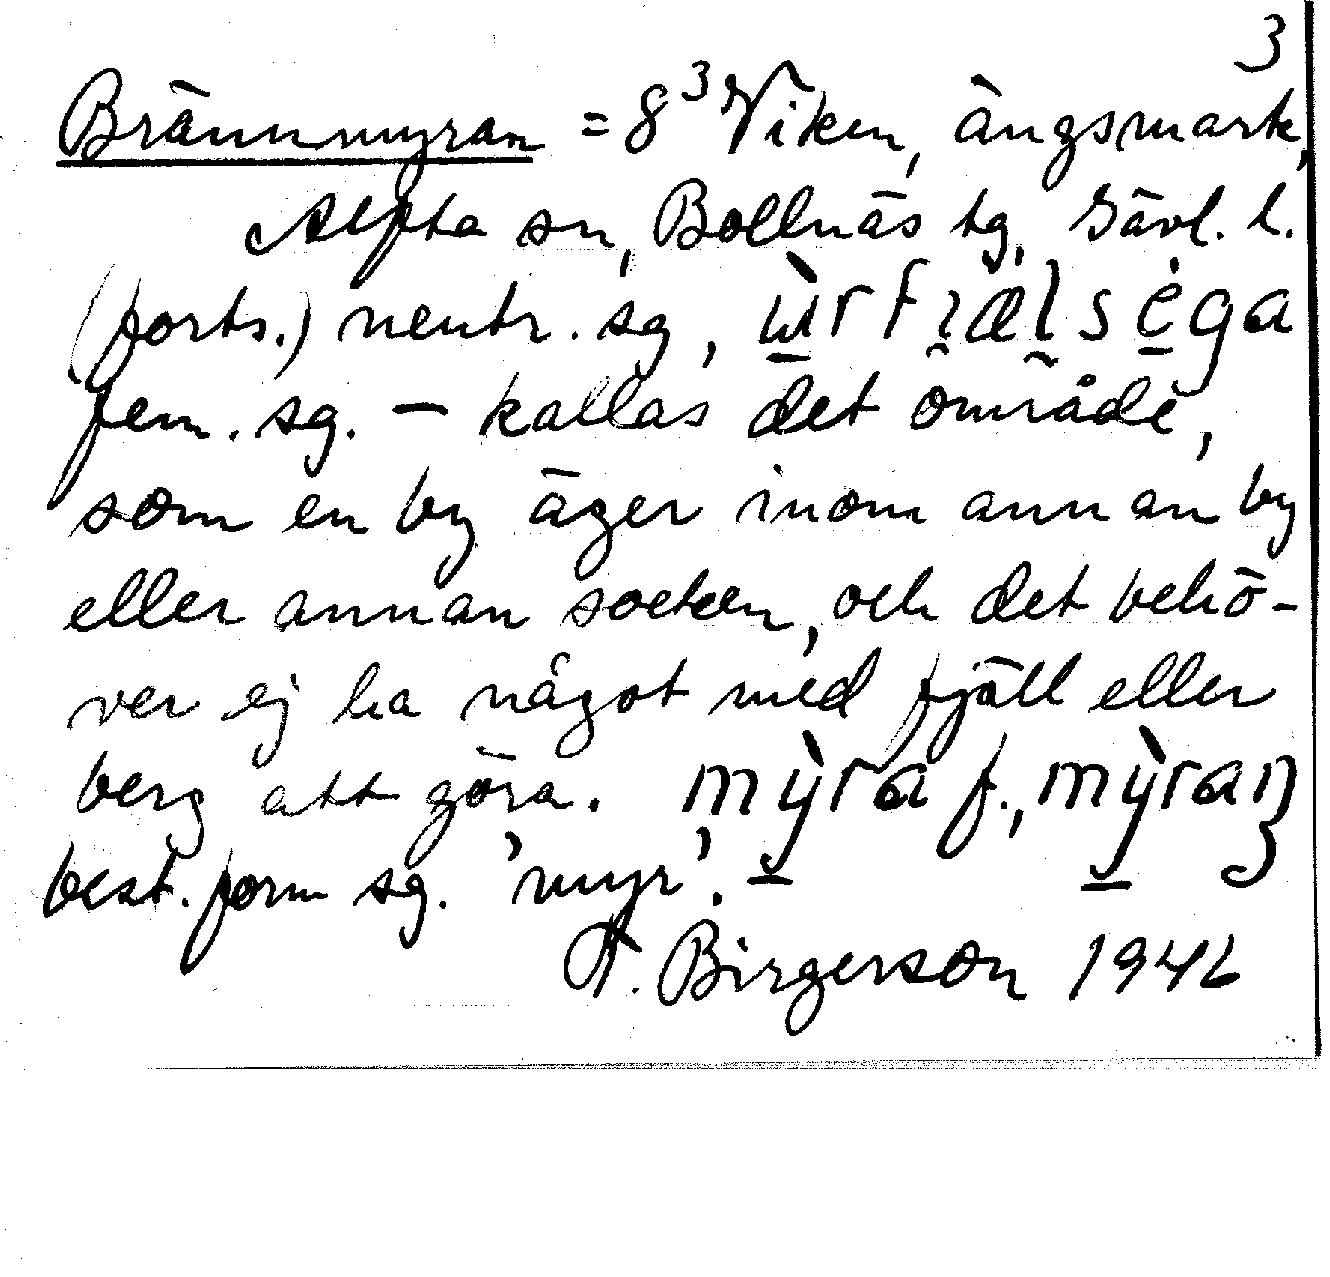 3
Brännmyran = 8³ Viken, ängsmark,
Alfta sn, Bollnäs tg, Gävl. l.
(forts.) neutr. sg, ẁrfi̯æls ėga
fem. sg. – kallas det område,
som en by äger inom annan by
eller annan socken, och det behö-
ver ej ha något med fjäll eller
berg att göra. mỳra f., mỳraṇ
best. form sg. 'myr'.
A. Birgerson 1946